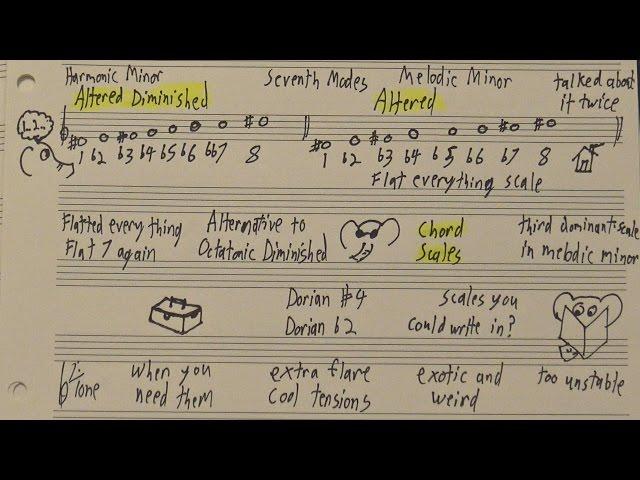 Harmonic Minor
Altered Diminished
Seventh Modes
Melodic Minor
Altered
talked about
it twice
1.2..
1 b2 b3 b4 b5 b6 bb7 8
1 b2 b3 b4 b5 b6 b7 8
Flat everything scale
Flatted everything
Flat 7 again
Alternative to
Octatonic Diminished
Chord
Scales
third dominant scale
in melodic minor
Dorian #4
Dorian b2
Scales you
Could write in?
Tone
when you
need them
extra flare
Cool tensions
exotic and
weird
too unstable